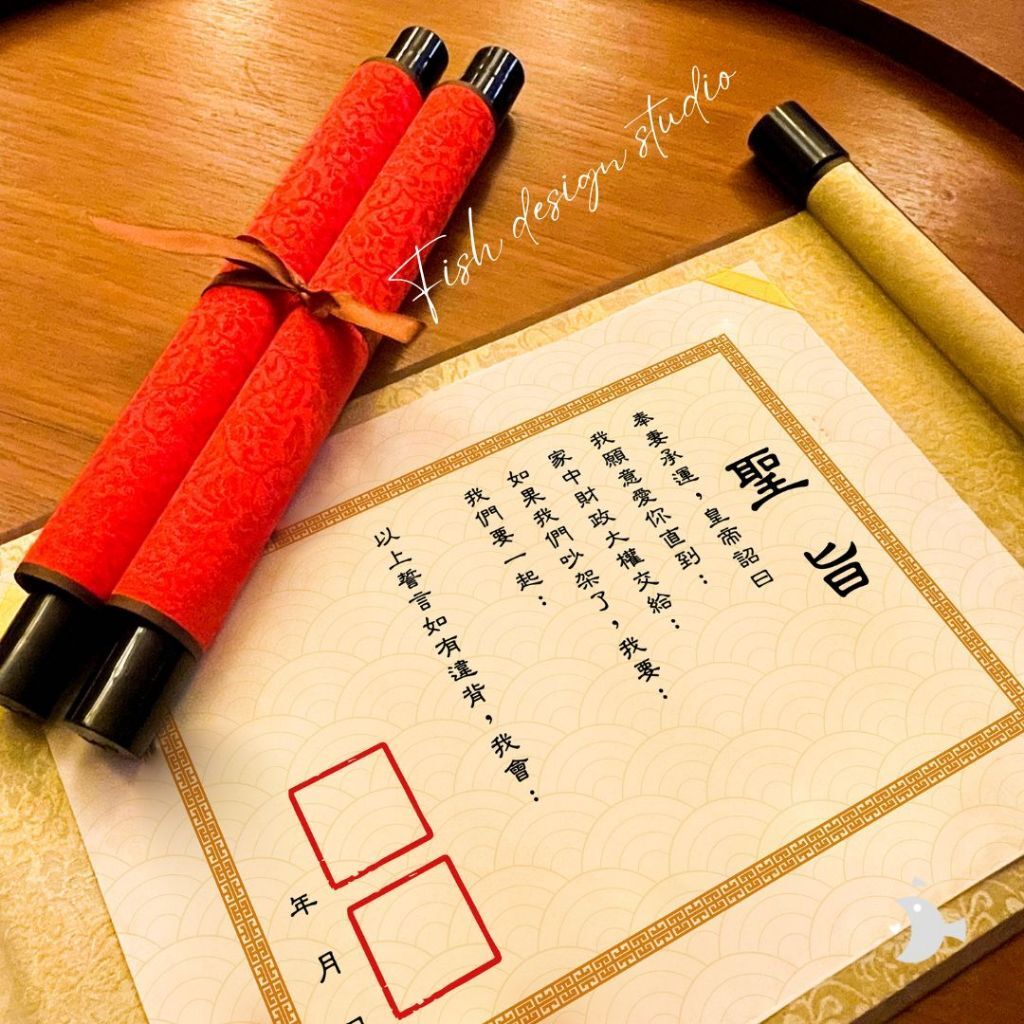 Fish design studio
聖旨
奉妻承運，皇帝詔曰
我願意愛你直到：
家中財政大權交給：
如果我們吵架了，我要：
我們要一起：
以上誓言如有違背，我會：
年月